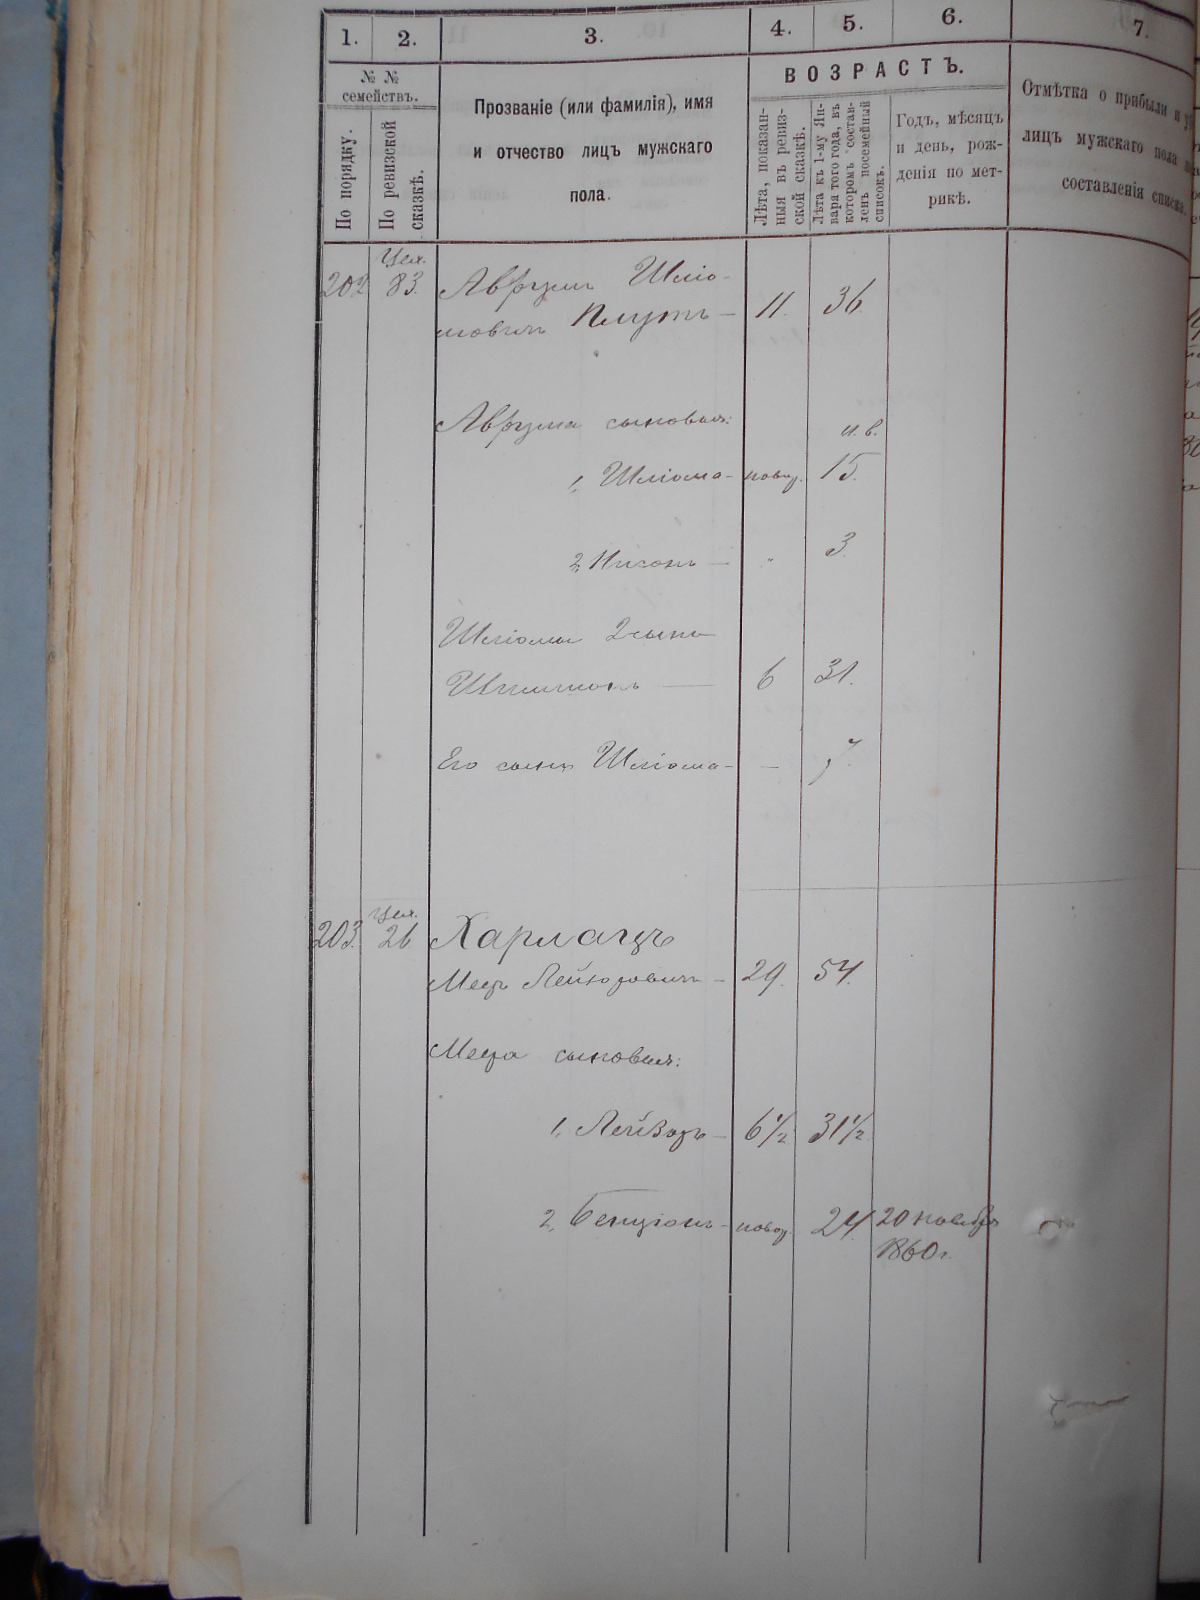 1. 2. 3. 4. 5. 6. 7.
№ № семействъ.
По порядку.
По ревизской сказкѣ.
Прозваніе (или фамилія), имя
и отчество лицъ мужскаго
пола.
ВОЗРАСТЪ.
Лѣта, показан-
ныя въ ревиз-
ской сказкѣ.
Лѣта къ 1-му Ян-
варя того года, въ
которомъ состав-
ленъ посемейный
списокъ.
Годъ, мѣсяцъ
и день, рож-
денія по мет-
рикѣ.
Отмѣтка о прибыли и
лицъ мужскаго пола
составленія списка.
202 83. Аврумъ Шліо-
мовичъ Плутъ — 11. 36.
Аврума сыновья: н. в.
1, Шліома — новор. 15.
2, Нисонъ — " 3.
Шліомы 2 сынъ
— 6 31.
Его сынъ Шліома — —
203. 26 Харлацъ
Мееръ Лейзоровичъ — 29. 54.
Меера сыновья:
1, Лейзоръ — 6 1/2 31 1/2
2, Бенціонъ — новор. 24. 20 ноября
1860 г.